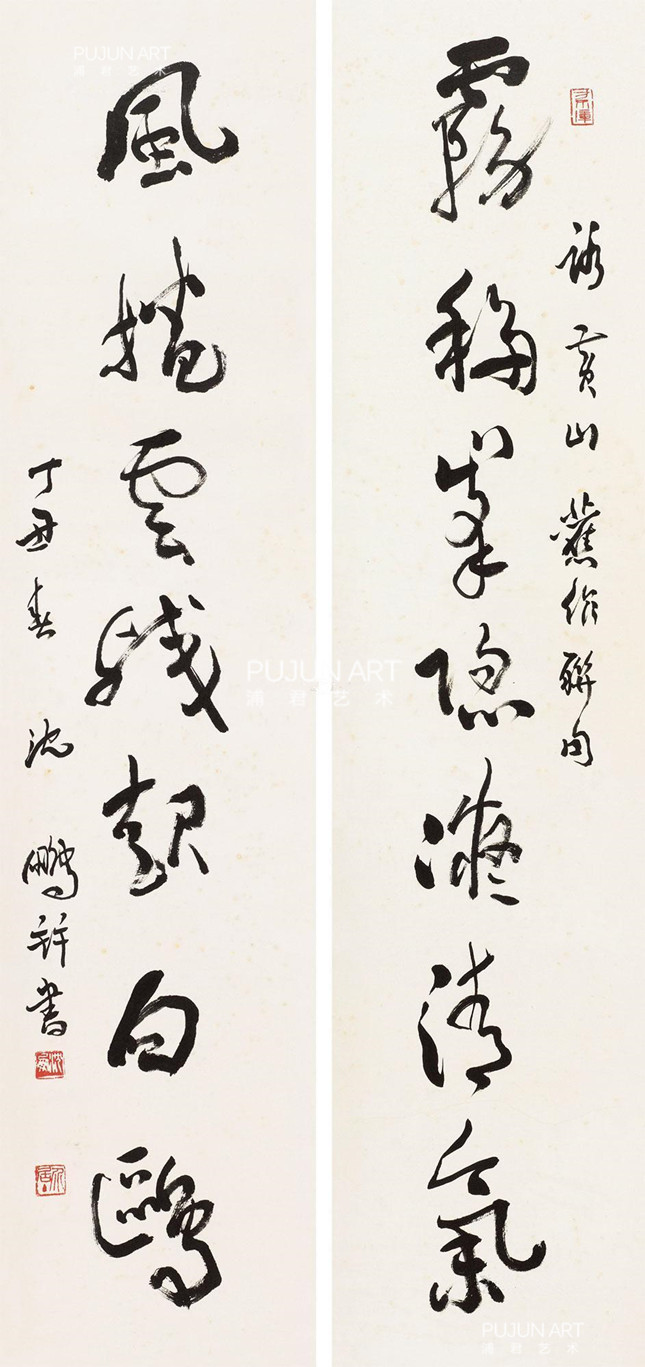 黄山舊作聯句
霧移峯隐凝清氣
風雲殘起白鷗
丁丑春 沈鵬并書
PUJUN ART
浦君艺术
PUJUN ART
浦君艺术
PUJUN ART
浦君艺术